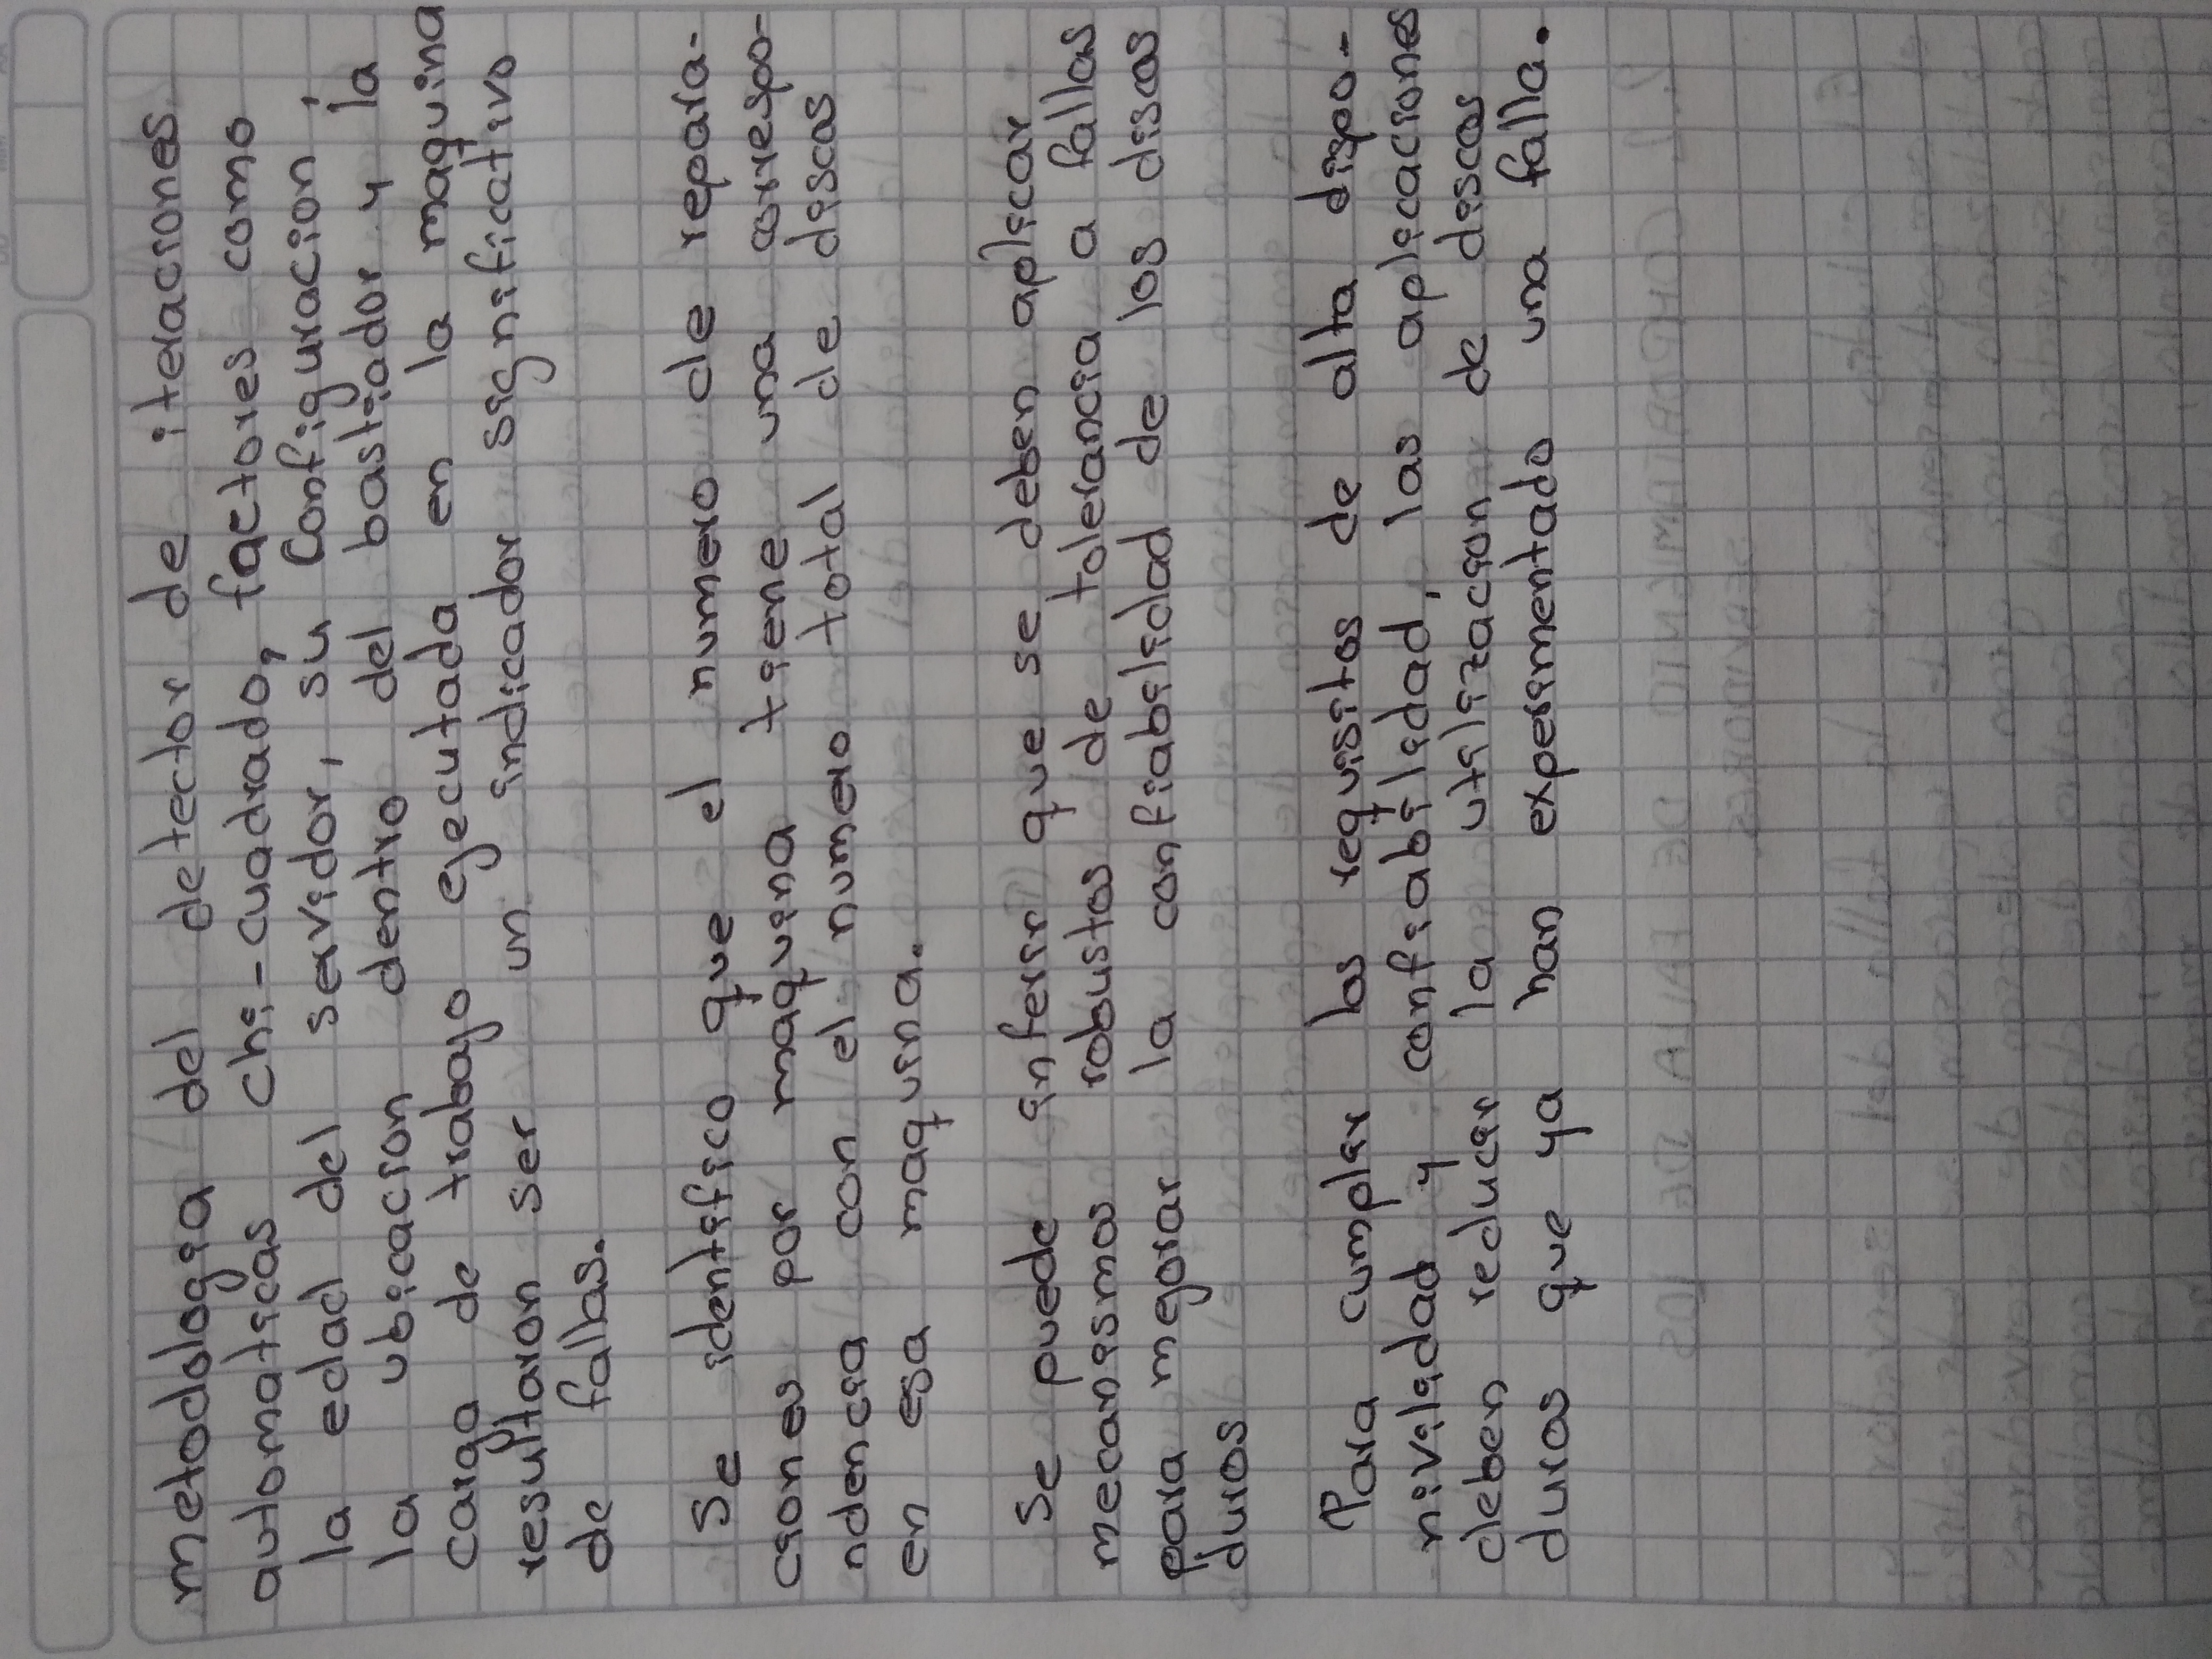 metodologia del detector de iteraciones
automaticas chi-cuadrado, factores como
la edad del servidor, su configuracion,
la ubicacion dentro del bastiador y la
carga de trabajo ejecutada en la maquina
resultaron ser un indicador significativo
de fallas.
Se identifico que el numero de repara-
ciones por maquina tiene una correspo-
ndencia con el numero total de discos
en esa maquina.
Se puede inferir que se deben aplicar
mecanismos robustos de tolerancia a fallas
para mejorar la confiabilidad de los discos
duros
Para cumplir los requisitos de alta dispo-
nivilidad y confiabilidad, las aplicaciones
deben reducir la utilizacion de discos
duros que ya han experimentado una falla.